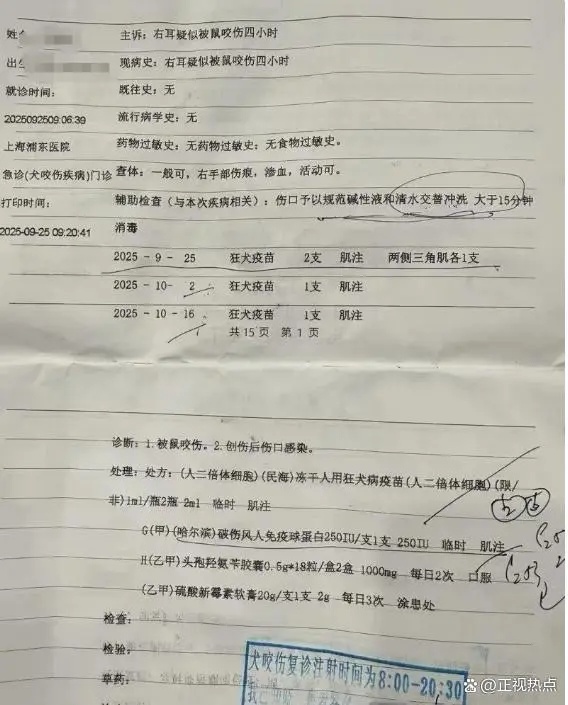 姓
主诉：右耳疑似被鼠咬伤四小时
出生
现病史：右耳疑似被鼠咬伤四小时
就诊时间：
既往史：无
2025092509:06:39
流行病学史：无
上海浦东医院
药物过敏史：无药物过敏史；无食物过敏史。
急诊(犬咬伤疾病)门诊
查体：一般可，右手部伤痕，渗血，活动可。
打印时间：
辅助检查（与本次疾病相关）：伤口予以规范碱性液和清水交替冲洗 大于15分钟
2025-09-25 09:20:41
消毒
2025－9－25 狂犬疫苗 2支 肌注 两侧三角肌各1支
2025－10－2 狂犬疫苗 1支 肌注
2025－10－16 狂犬疫苗 1支 肌注
共15页 第1页
诊断：1.被鼠咬伤。2.创伤后伤口感染。
处理：处方：(人二倍体细胞)(民海)冻干人用狂犬病疫苗(人二倍体细胞)(限/
非)1ml/瓶2瓶 2ml 临时 肌注
G(甲)(哈尔滨)破伤风人免疫球蛋白250IU/支1支 250IU 临时 肌注
H(乙甲)头孢羟氨苄胶囊0.5g*18粒/盒2盒 1000mg 每日2次 口服
(乙甲)硫酸新霉素软膏20g/支1支 2g 每日3次 涂患处
检查：
检验：
草药：
犬咬伤复诊注射时间为8:00-20:30
@正视热点